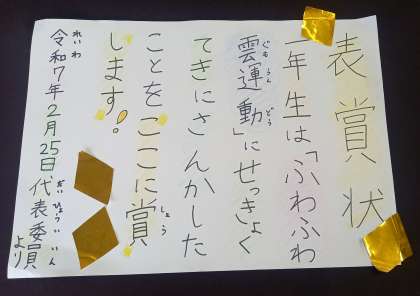 表賞状
一年生は「ふわふわ
雲運動」にせっきょく
てきにさんかした
ことをここに賞
します!
令和7年2月25日
代表委員
より